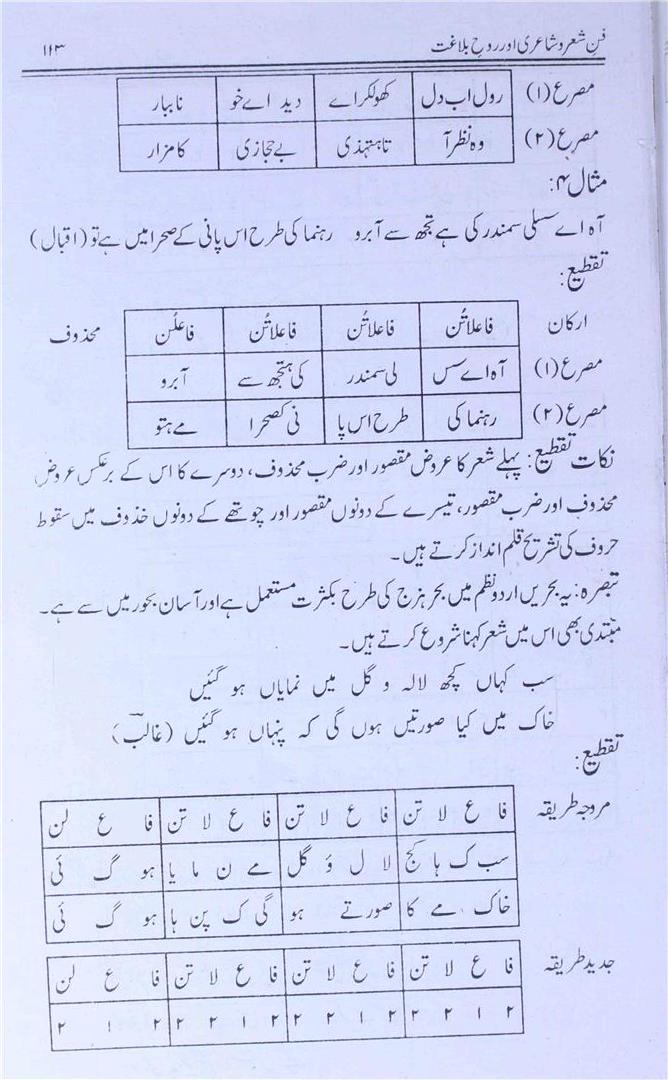 فنِ شعر و شاعری اور روحِ بلاغت ۱۱۳
مصرع (۱) رول اب دل کھولکراے دید اے خو ناببار
مصرع (۲) وہ نظر آ تاہتہذی بے حجازی کا مزار
مثال ۴:
آہ اے سسلی سمندر کی ہے تجھ سے آبرو رہنما کی طرح اس پانی کے صحرا میں ہے تو (اقبال)
تقطیع:
ارکان فاعلاتُن فاعلاتُن فاعلاتُن فاعلُن محذوف
مصرع (۱) آہ اے سس لی سمندر کی ہتجھ سے آبرو
مصرع (۲) رہنما کی طرح اس پا نی کصحرا مے ہتو
نکات تقطیع: پہلے شعر کا عروض مقصور اور ضرب محذوف، دوسرے کا اس کے برعکس عروض
محذوف اور ضرب مقصور، تیسرے کے دونوں مقصور اور چوتھے کے دونوں خذوف میں سقوط
حروف کی تشریح قلم انداز کرتے ہیں۔
تبصرہ: یہ بحریں اردو نظم میں بحر ہزج کی طرح بکثرت مستعمل ہے اور آسان بحور میں سے ہے۔
مبتدی بھی اس میں شعر کہنا شروع کرتے ہیں۔
سب کہاں کچھ لالہ و گل میں نمایاں ہو گئیں
خاک میں کیا صورتیں ہوں گی کہ پنہاں ہو گئیں (غالبؔ)
تقطیع:
مروجہ طریقہ فا ع لا تن فا ع لا تن فا ع لا تن فا ع لن
سب ک ہا کج لا ل ؤ گل مے ن ما یا ہو گ ئی
خاک مے کا صورتے ہو گی ک پن ہا ہو گ ئی
جدید طریقہ فا ع لا تن فا ع لا تن فا ع لا تن فا ع لن
۲ ۱ ۲ ۲ ۲ ۱ ۲ ۲ ۲ ۱ ۲ ۲ ۲ ۱ ۲